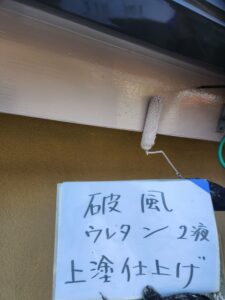 破風
ウレタン2液
上塗仕上げ